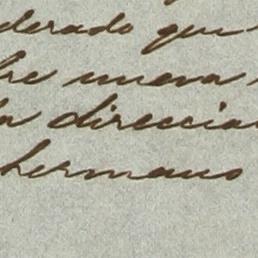 derado que
bre nueva
la direccion
hermano